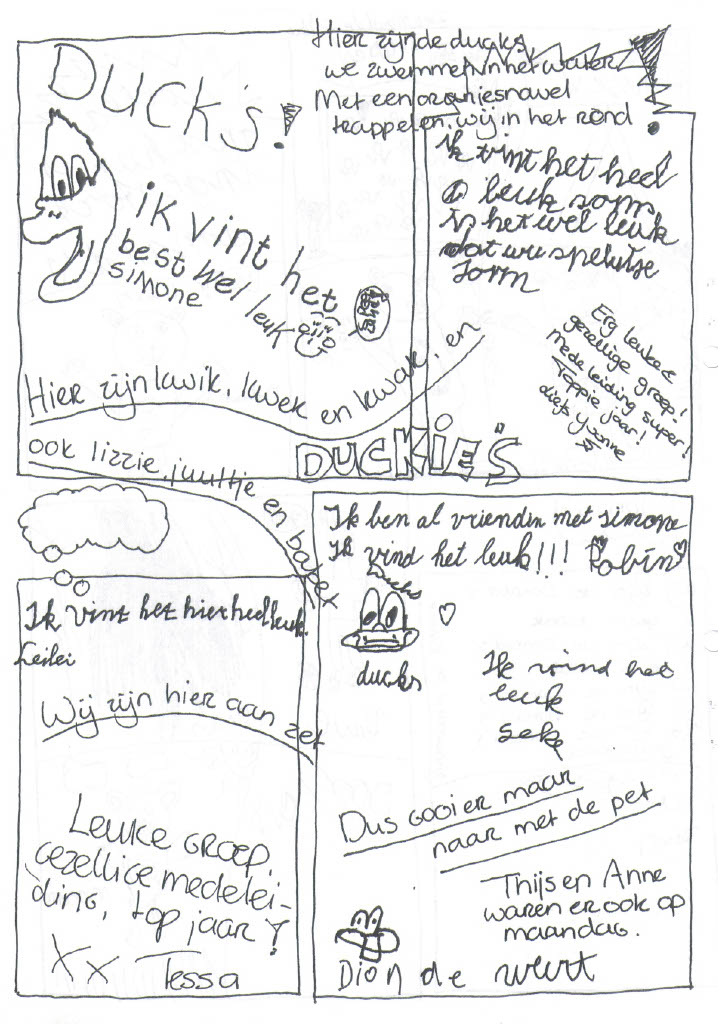 Ducks!
ik vint het
best wel leuk
Simone
Hier zijn de ducks,
we zwemmen in het water
Met een oranjesnavel
trappelen wij in het rond
ik vint het heel
leuk sorm
is het wel leuk
dat wu spelutje
sorm
Erg leuke &
gezellige groep!
Mede leiding super!
Toppie jaar!
liefs Yvonne
Hier zijn kwik, kwek en kwak, en
ook lizzie, juultje en
DUCKIE'S
Ik vint het hier heel leuk.
Leilei
Wij zijn hier aan zet
Leuke groep,
gezellige medelei-
ding, top jaar!
XX Tessa
Ik ben al vriendin met simone
Ik vind het leuk!!! Robin
Ducks
ducks
Ik vind het
leuk
Dus gooi er maar
naar met de pet
Thijs en Anne
waren er ook op
maandag.
Dion de Weert